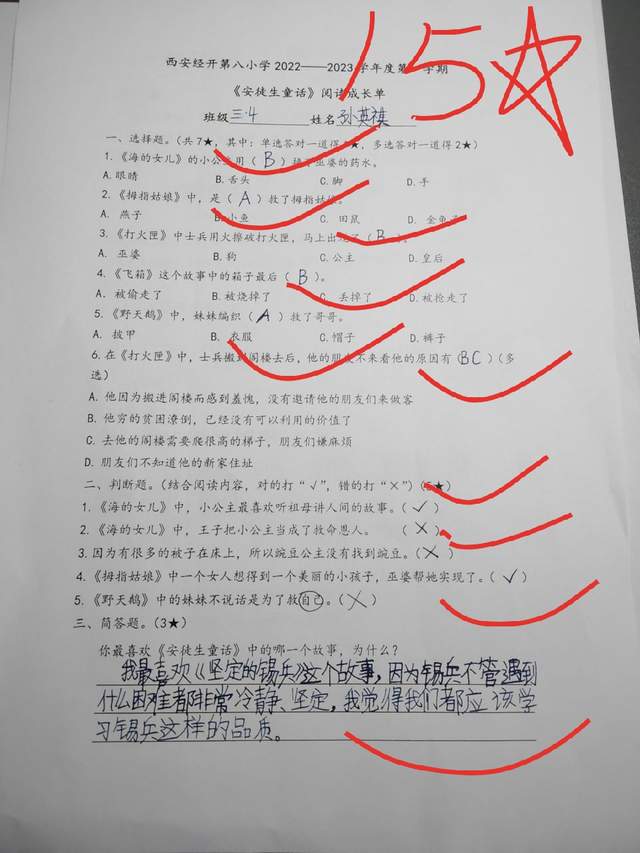 15☆
西安经开第八小学2022——2023学年度第 学期
《安徒生童话》阅读成长单
班级三.4 姓名孙英祺
一、选择题。(共7★,其中:单选答对一道得 ★,多选答对一道得2★)
1.《海的女儿》的小公主用(B)换 巫婆的药水。
A.眼睛 B.舌头 C.脚 D.手
2.《拇指姑娘》中,是(A)救了拇指姑娘。
A. 燕子 B.小鱼 C. 田鼠 D. 金龟子
3.《打火匣》中士兵用火擦破打火匣,马上出现了(B)。
A. 巫婆 B.狗 C.公主 D.皇后
4.《飞箱》这个故事中的箱子最后(B)。
A. 被偷走了 B.被烧掉了 C. 丢掉了 D.被抢走了
5.《野天鹅》中,妹妹编织(A)救了哥哥。
A. 披甲 B. 衣服 C.帽子 D.裤子
6.在《打火匣》中,士兵搬到阁楼去后,他的朋友不来看他的原因有(BC)(多
选)
A. 他因为搬进阁楼而感到羞愧,没有邀请他的朋友们来做客
B. 他穷的贫困潦倒,已经没有可以利用的价值了
C. 去他的阁楼需要爬很高的梯子,朋友们嫌麻烦
D. 朋友们不知道他的新家住址
二、判断题。(结合阅读内容,对的打“√”,错的打“×”)(5★)
1.《海的女儿》中,小公主最喜欢听祖母讲人间的故事。(√)
2.《海的女儿》中,王子把小公主当成了救命恩人。 (×)
3.因为有很多的被子在床上,所以豌豆公主没有找到豌豆。(×)
4.《拇指姑娘》中一个女人想得到一个美丽的小孩子,巫婆帮她实现了。(√)
5.《野天鹅》中的妹妹不说话是为了救自己。(×)
三、简答题。(3★)
你最喜欢《安徒生童话》中的哪一个故事,为什么?
我最喜欢《坚定的锡兵》这个故事,因为锡兵不管遇到
什么困难都非常冷静、坚定,我觉得我们都应该学
习锡兵这样的品质。